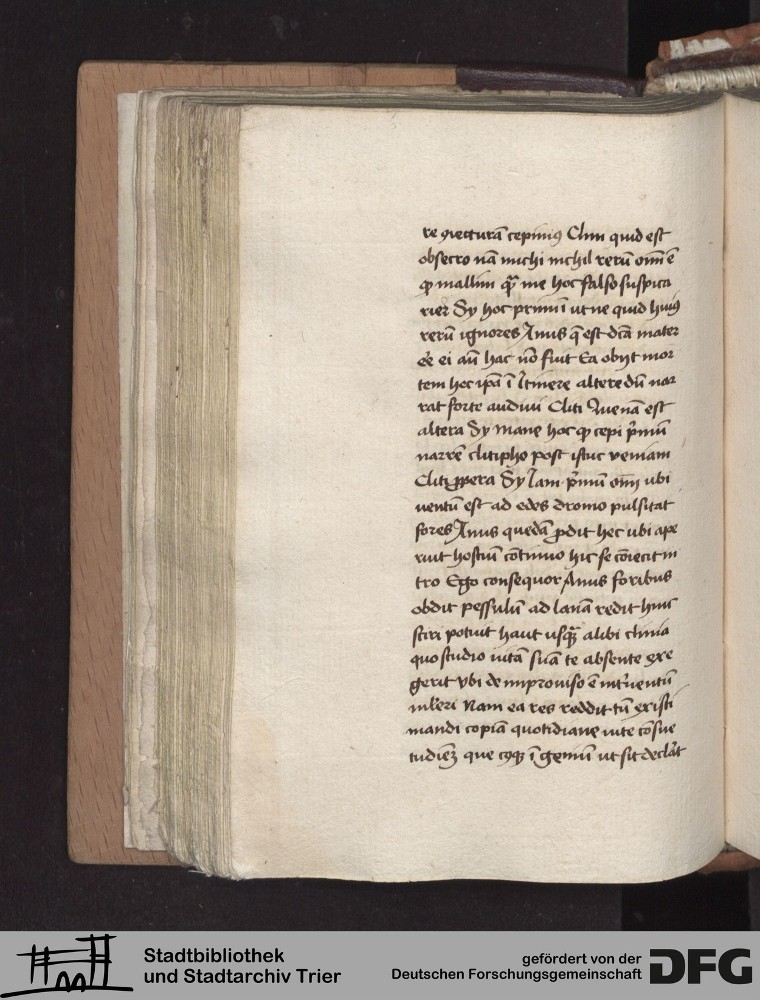 re ꝯiecturā cepimꝰ Clini quid est
obsecro nā michi nichil rerū om̄i ē
qͦ mallim qͣ̄ me hoc falso suspica
rier Sy hoc primū ut ne quid huiꝰ
rerū ignores Anus q̄ est dc̄a mater
eē ei añ hac nō fuit Ea obijt mor
tem hoc ip̄a ī Itinere altere dū nar
rat forte audiui Cliti Quenā est
altera Sy Mane hoc qͦ cepi p̄mū
narrē clitipho post istuc veniam
Cliti ꝓpera Sy Iam p̄mū om̄i ubi
uentū est ad edes dromo pulsitat
fores Anus quedā ꝓdit hec ubi ape
ruit hostiū cōtinuo hic se cōiecit in
tro Ego consequor Anus foribus
obdit pessulū ad lanā redit hinc
sciri potuit haut usqͣ̄ alibi clinia
quo studio uitā suā te absente exe
gerit vbi de improuiso ē int͛uentū
ml̓eri Nam ea res reddit tū existi
mandi copiā quotidiane uite cōsue
tudiēꝫ que cuꝰqꝫ īgeniū ut sit declāt
Stadtbibliothek
und Stadtarchiv Trier
gefördert von der
Deutschen Forschungsgemeinschaft
DFG